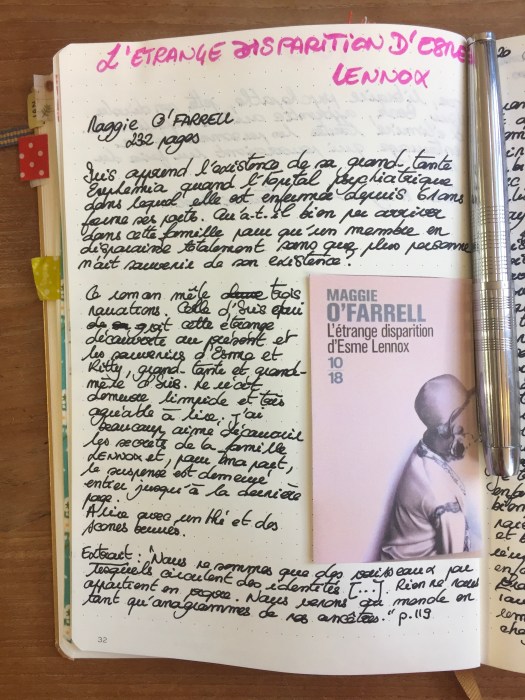 L'ETRANGE DISPARITION D'ESME
LENNOX
Maggie O'FARRELL
232 pages
Iris apprend l'existence de sa grand-tante
Euphemia quand l'hôpital psychiatrique
dans lequel elle est enfermée depuis 61 ans
ferme ses portes. Qu'a-t-il bien pu arriver
dans cette famille pour qu'un membre en
disparaisse totalement sans que plus personne
n'ait souvenir de son existence ?
Ce roman mêle trois
narrations. Celle d'Iris qui
fait cette étrange
découverte au présent et
les souvenirs d'Esme et
Kitty, grand-tante et grand-
mère d'Iris. Le récit
demeure limpide et très
agréable à lire, j'ai
beaucoup aimé découvrir
les secrets de la famille
LENNOX et, pour ma part,
le suspense est demeuré
entier jusqu'à la dernière
page.
A lire avec un thé et des
scones beurrés.
Extrait : "Nous ne sommes que des vaisseaux par
lesquels circulent des identités [...]. Rien ne nous
appartient en propre. Nous venons au monde en
tant qu'anagrammes de nos ancêtres." p.119
32
MAGGIE
O'FARRELL
L'étrange disparition
d'Esme Lennox
10
18